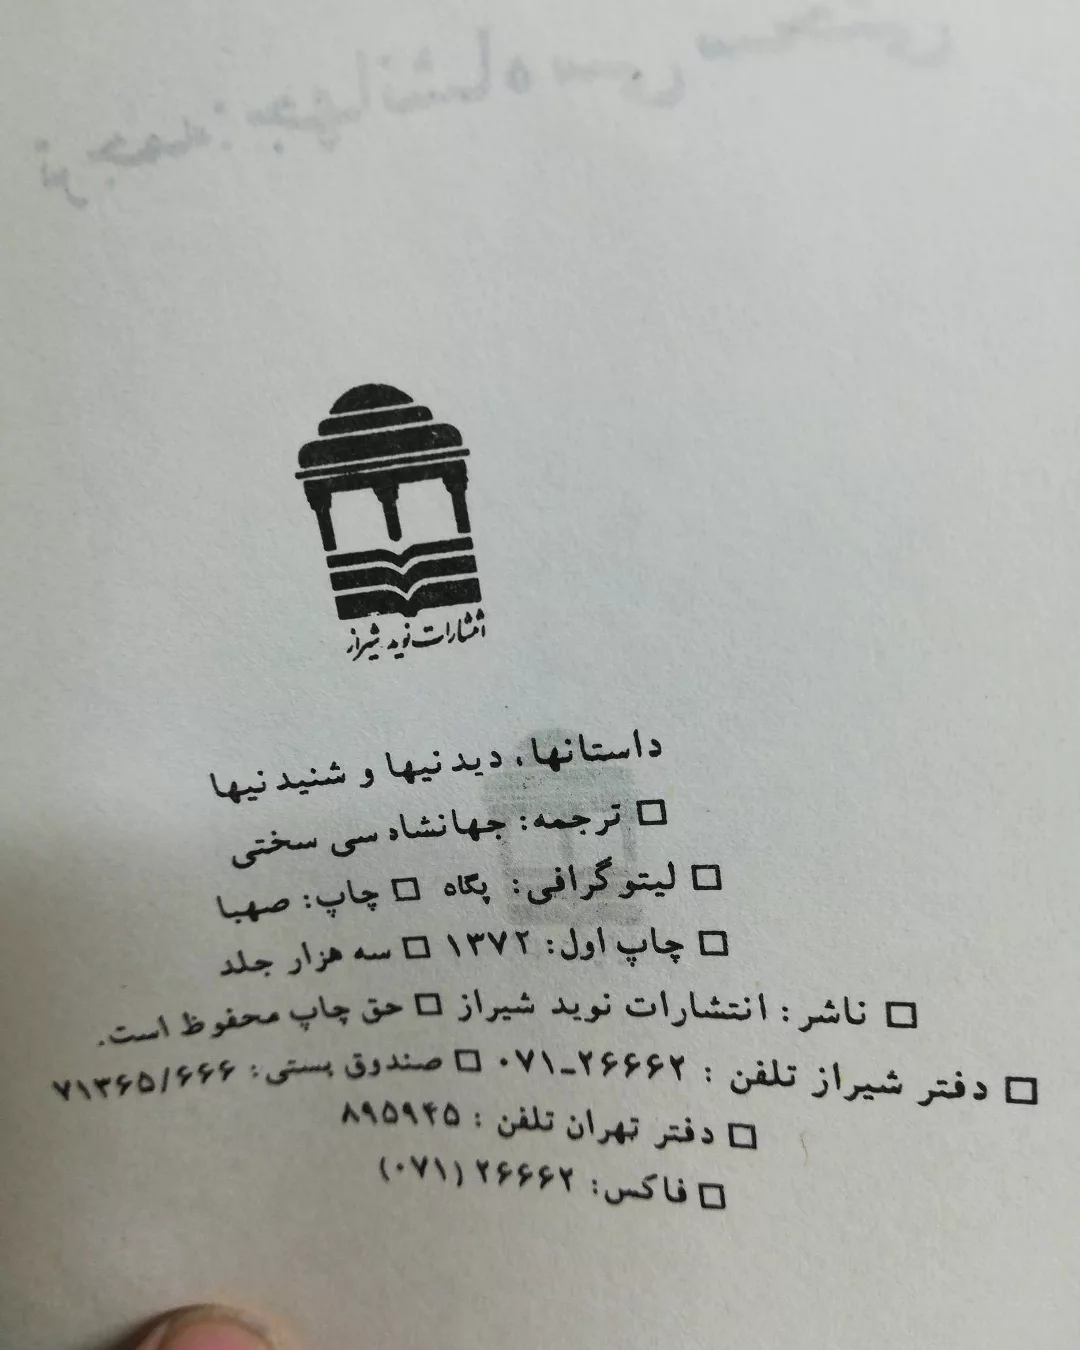 ترجمه: جهانشاه سی سختی
انتشارات نوید شیراز
داستانها، دیدنیها و شنیدنیها
□ ترجمه: جهانشاه سی سختی
□ لیتوگرافی: پگاه □ چاپ: صهبا
□ چاپ اول: ۱۳۷۲ □ سه هزار جلد
□ ناشر: انتشارات نوید شیراز □ حق چاپ محفوظ است.
□ دفتر شیراز تلفن: ۲۶۶۶۲-۰۷۱ □ صندوق بستی: ۷۱۳۶۵/۶۶۶
□ دفتر تهران تلفن: ۸۹۵۹۴۵
□ فاکس: ۲۶۶۶۲ (۰۷۱)